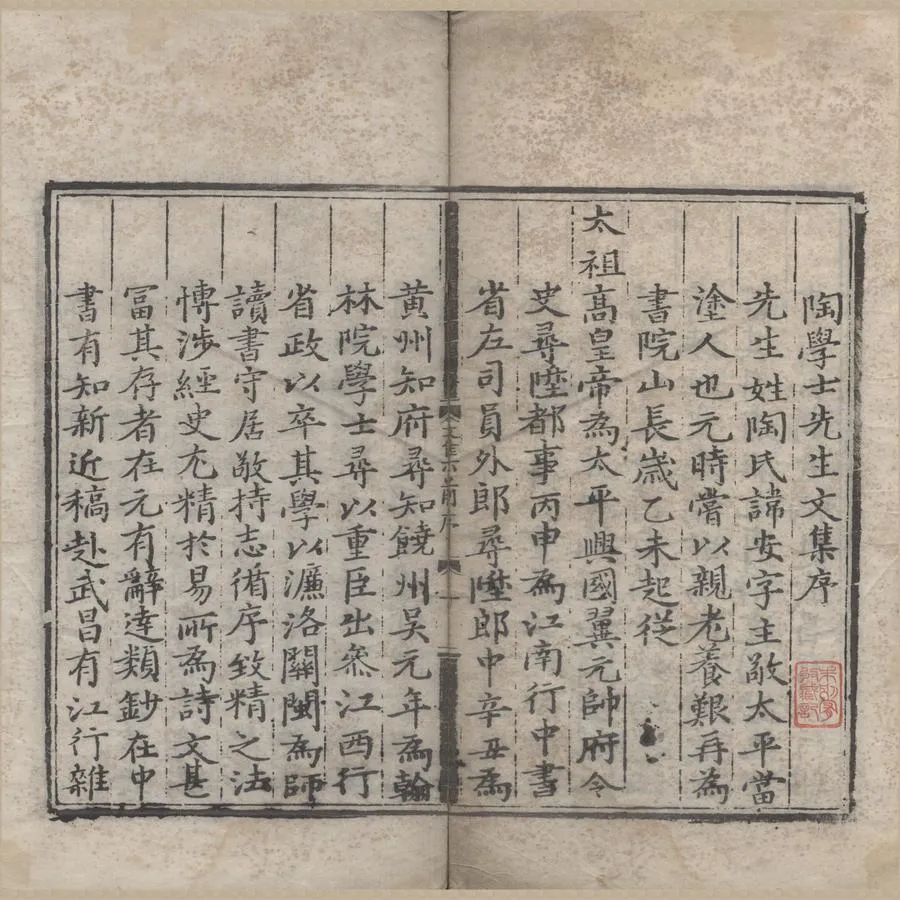 陶學士先生文集序
先生姓陶氏諱安字主敬太平當
塗人也元時嘗以親老養艱再為
書院山長歲乙未起從
太祖高皇帝為太平興國翼元帥府令
史尋陞都事丙申為江南行中書
省左司員外郎尋陞郎中辛丑為
黄州知府尋知饒州吳元年為翰
林院學士尋以重臣出叅江西行
省政以卒其學以濂洛關閩為師
讀書守居敬持志循序致精之法
愽涉經史尤精於易所為詩文甚
冨其存者在元有辭達類鈔在中
書有知新近稿赴武昌有江行雜